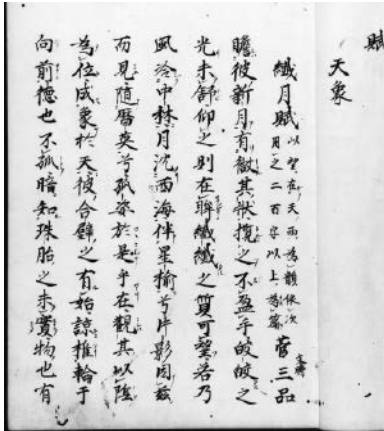 賦
天象
纖月賦 以望在天西為韻依次用之二百字以上為篇 菅三品 文時
瞻彼新月有微其狀攬之不盈手皎皎之
光未舒仰之則在眸纖纖之質可望若乃
風冷中林月沈西海伴星榆兮片影因茲
而見隨曆莢兮孤姿於是乎在觀其以陰
為位成象於天彼合璧之有始諒推輪于
向前德也不孤暗知珠胎之未實物也有